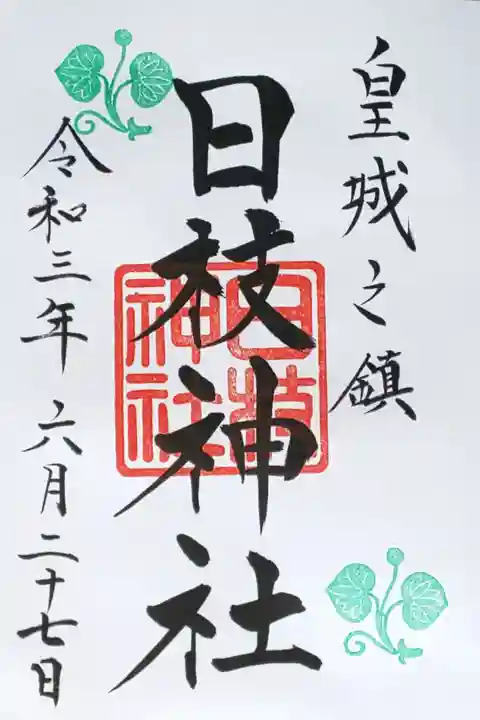 皇城之鎮
日枝神社
日枝神社
令和三年六月二十七日